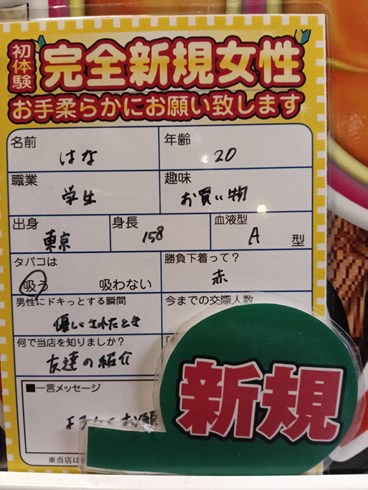 初体験
完全新規女性
お手柔らかにお願い致します
名前 はな
年齢 20
職業 学生
趣味 お買い物
出身 東京
身長 158
血液型 A 型
タバコは 吸う 吸わない
勝負下着って? 赤
男性にドキっとする瞬間
優しくされたとき
今までの交際人数
何で当店を知りましたか?
友達の紹介
■一言メッセージ
よろしくお願
※当店は
新規